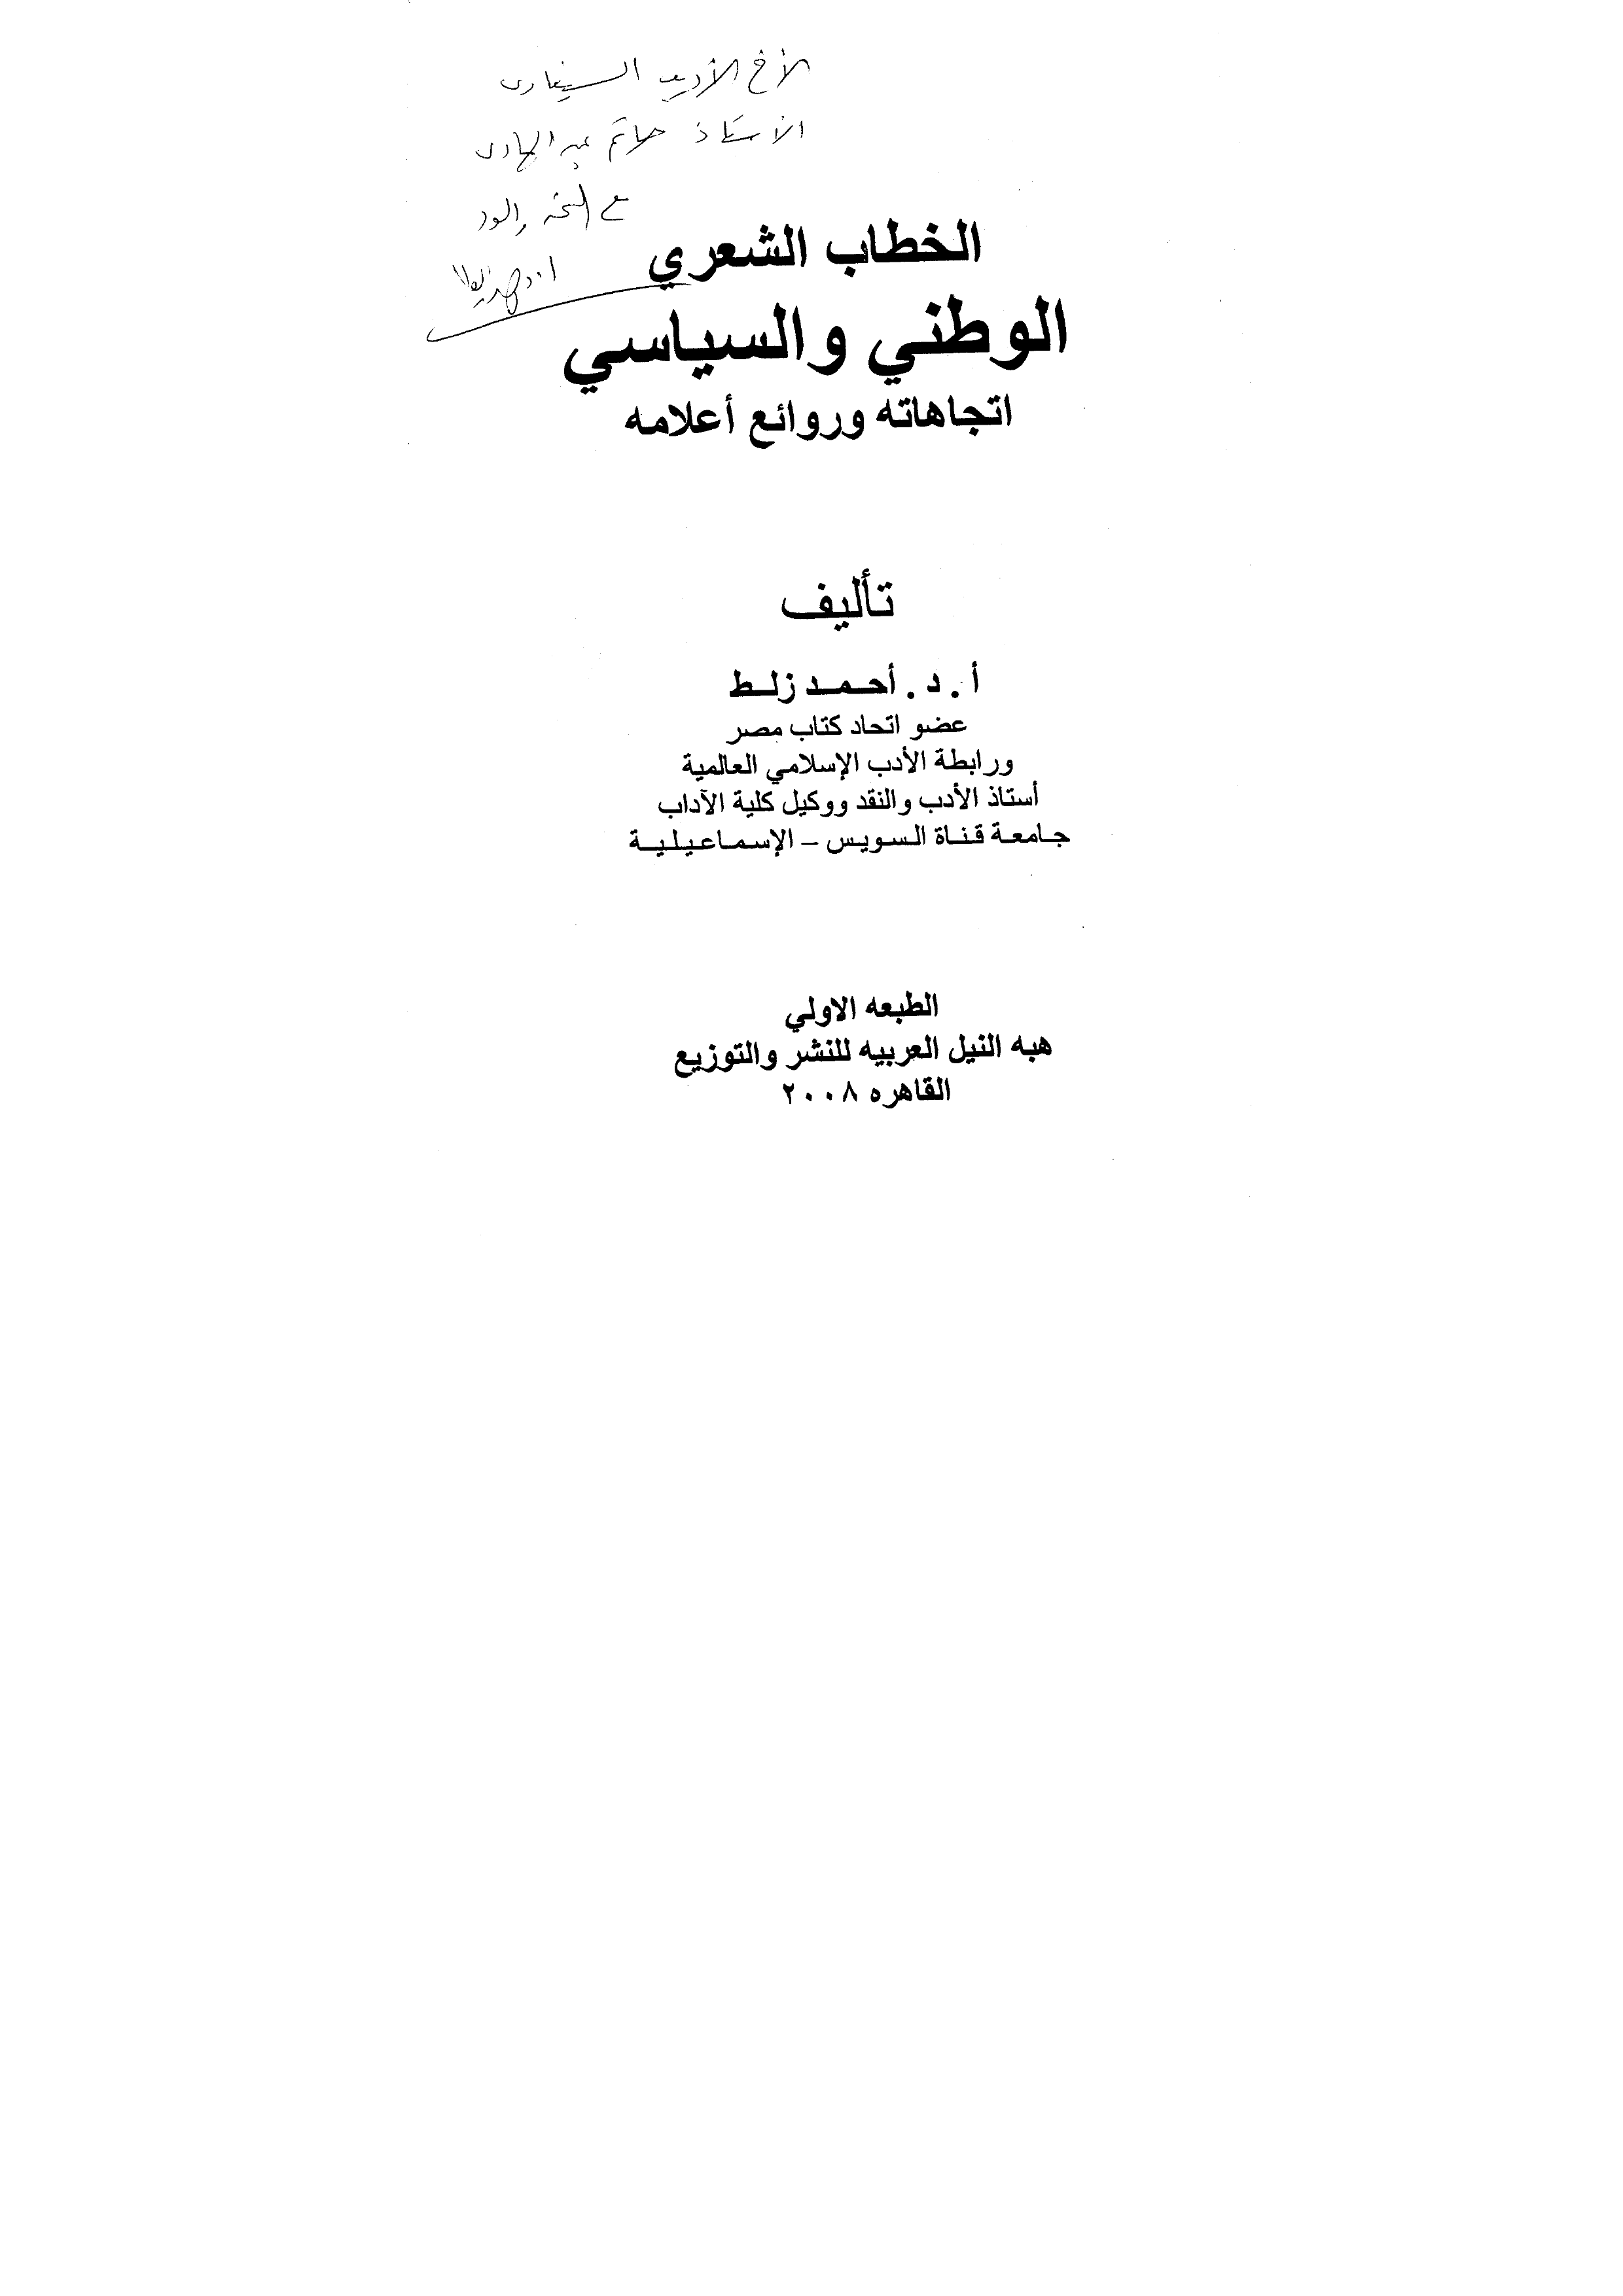 الأخ الأديب السيناوى
الأستاذ حاتم عبد الهادى
مع التحية والود
الخطاب الشعري
الوطني والسياسي
اتجاهاته وروائع أعلامه
تأليف
أ . د . أحمد زلط
عضو اتحاد كتاب مصر
ورابطة الأدب الإسلامي العالمية
أستاذ الأدب والنقد ووكيل كلية الآداب
جامعة قناة السويس – الإسماعيلية
الطبعه الاولي
هبه النيل العربيه للنشر والتوزيع
القاهره ٢٠٠٨